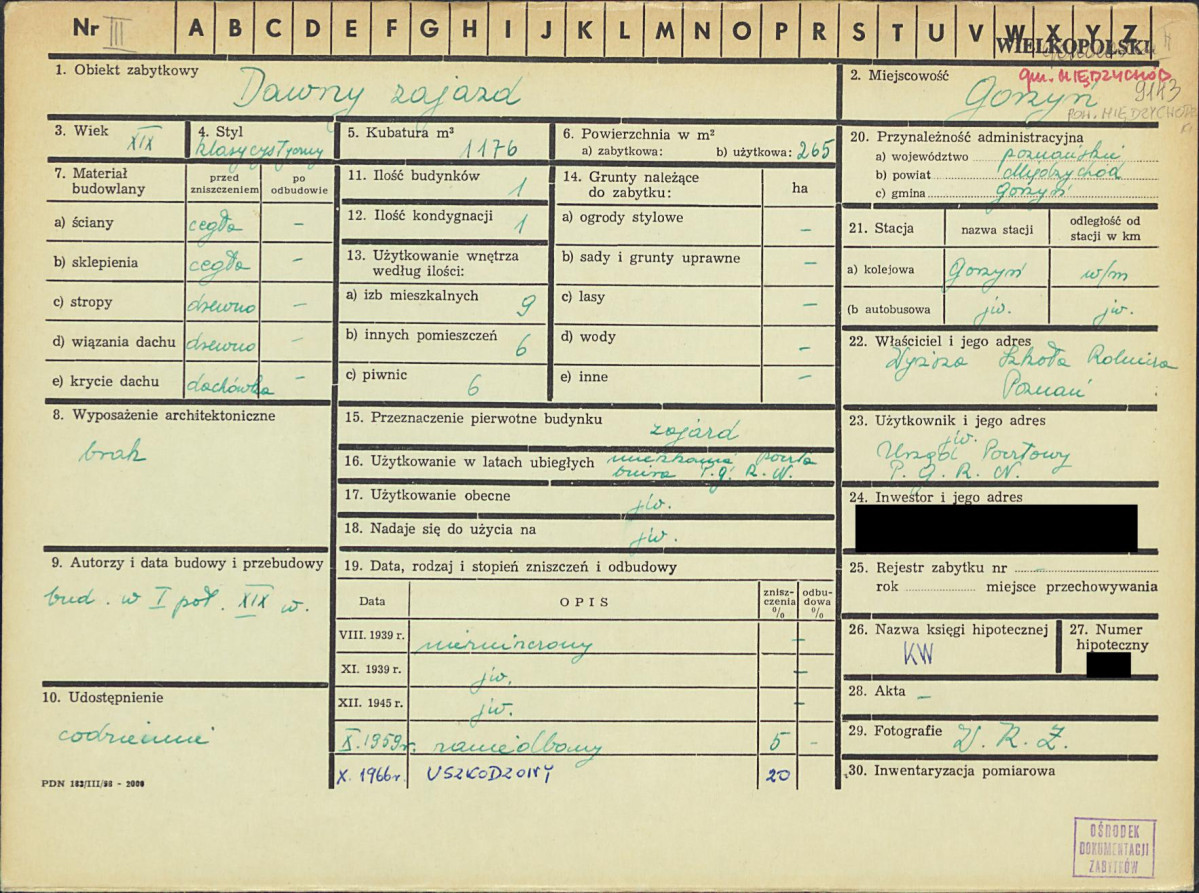 Nr III A B C D E F G H I J K L M N O P R S T U V W X Y Z
WIELKOPOLSKI
1. Obiekt zabytkowy
Dawny zajazd
2. Miejscowość
gm. MIĘDZYCHÓD
Gorzyń
9143
3. Wiek
XIX
4. Styl
klasycystyczny
5. Kubatura m³
1176
6. Powierzchnia w m²
a) zabytkowa: b) użytkowa: 265
7. Materiał budowlany
przed zniszczeniem
po odbudowie
a) ściany cegła –
b) sklepienia cegła –
c) stropy drewno –
d) wiązania dachu drewno –
e) krycie dachu dachówka –
8. Wyposażenie architektoniczne
brak
9. Autorzy i data budowy i przebudowy
bud. w I poł. XIX w.
10. Udostępnienie
codziennie
PDN 182/III/58 - 2000
11. Ilość budynków 1
12. Ilość kondygnacji 1
13. Użytkowanie wnętrza
według ilości:
a) izb mieszkalnych 9
b) innych pomieszczeń 6
c) piwnic 6
14. Grunty należące
do zabytku:
ha
a) ogrody stylowe –
b) sady i grunty uprawne –
c) lasy –
d) wody –
e) inne –
15. Przeznaczenie pierwotne budynku
zajazd
16. Użytkowanie w latach ubiegłych mieszkania Poczta
biura P.G.R.N.
17. Użytkowanie obecne jw.
18. Nadaje się do użycia na jw.
19. Data, rodzaj i stopień zniszczeń i odbudowy
Data
OPIS
zniszczenia %
odbudowa %
VIII. 1939 r. niezniszczony –
XI. 1939 r. jw. –
XII. 1945 r. jw. –
X. 1959 r. zaniedbany 5 –
X. 1966 r. USZKODZONY 20
20. Przynależność administracyjna
a) województwo poznańskie
b) powiat Międzychód
c) gmina Gorzyń
21. Stacja
nazwa stacji
odległość od
stacji w km
a) kolejowa Gorzyń w/m
(b autobusowa jw. jw.
22. Właściciel i jego adres
Wyższa Szkoła Rolnicza
Poznań
23. Użytkownik i jego adres
jw.
Urząd Pocztowy
P. G. R. N.
24. Inwestor i jego adres
25. Rejestr zabytku nr –
rok miejsce przechowywania
26. Nazwa księgi hipotecznej
KW
27. Numer
hipoteczny
28. Akta –
29. Fotografie W. K. Z.
30. Inwentaryzacja pomiarowa
OŚRODEK
DOKUMENTACJI
ZABYTKÓW